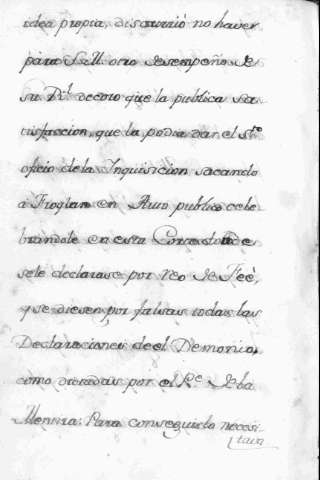 idea propia, discurrió no haver
para S. M. otro desempeño de
su Rl. decoro que la publica sa
tisfaccion, que la podia dar el Sto.
oficio de la Inquisicion sacando
a Froylan en Auto publico cele
brandole en esta Corte donde
se le declarase por reo de Feè,
y se diesen por falsas todas las
Declaraciones de el Demonio,
como dictadas por el Pe. de la
Mentira: Para conseguirlo necesi